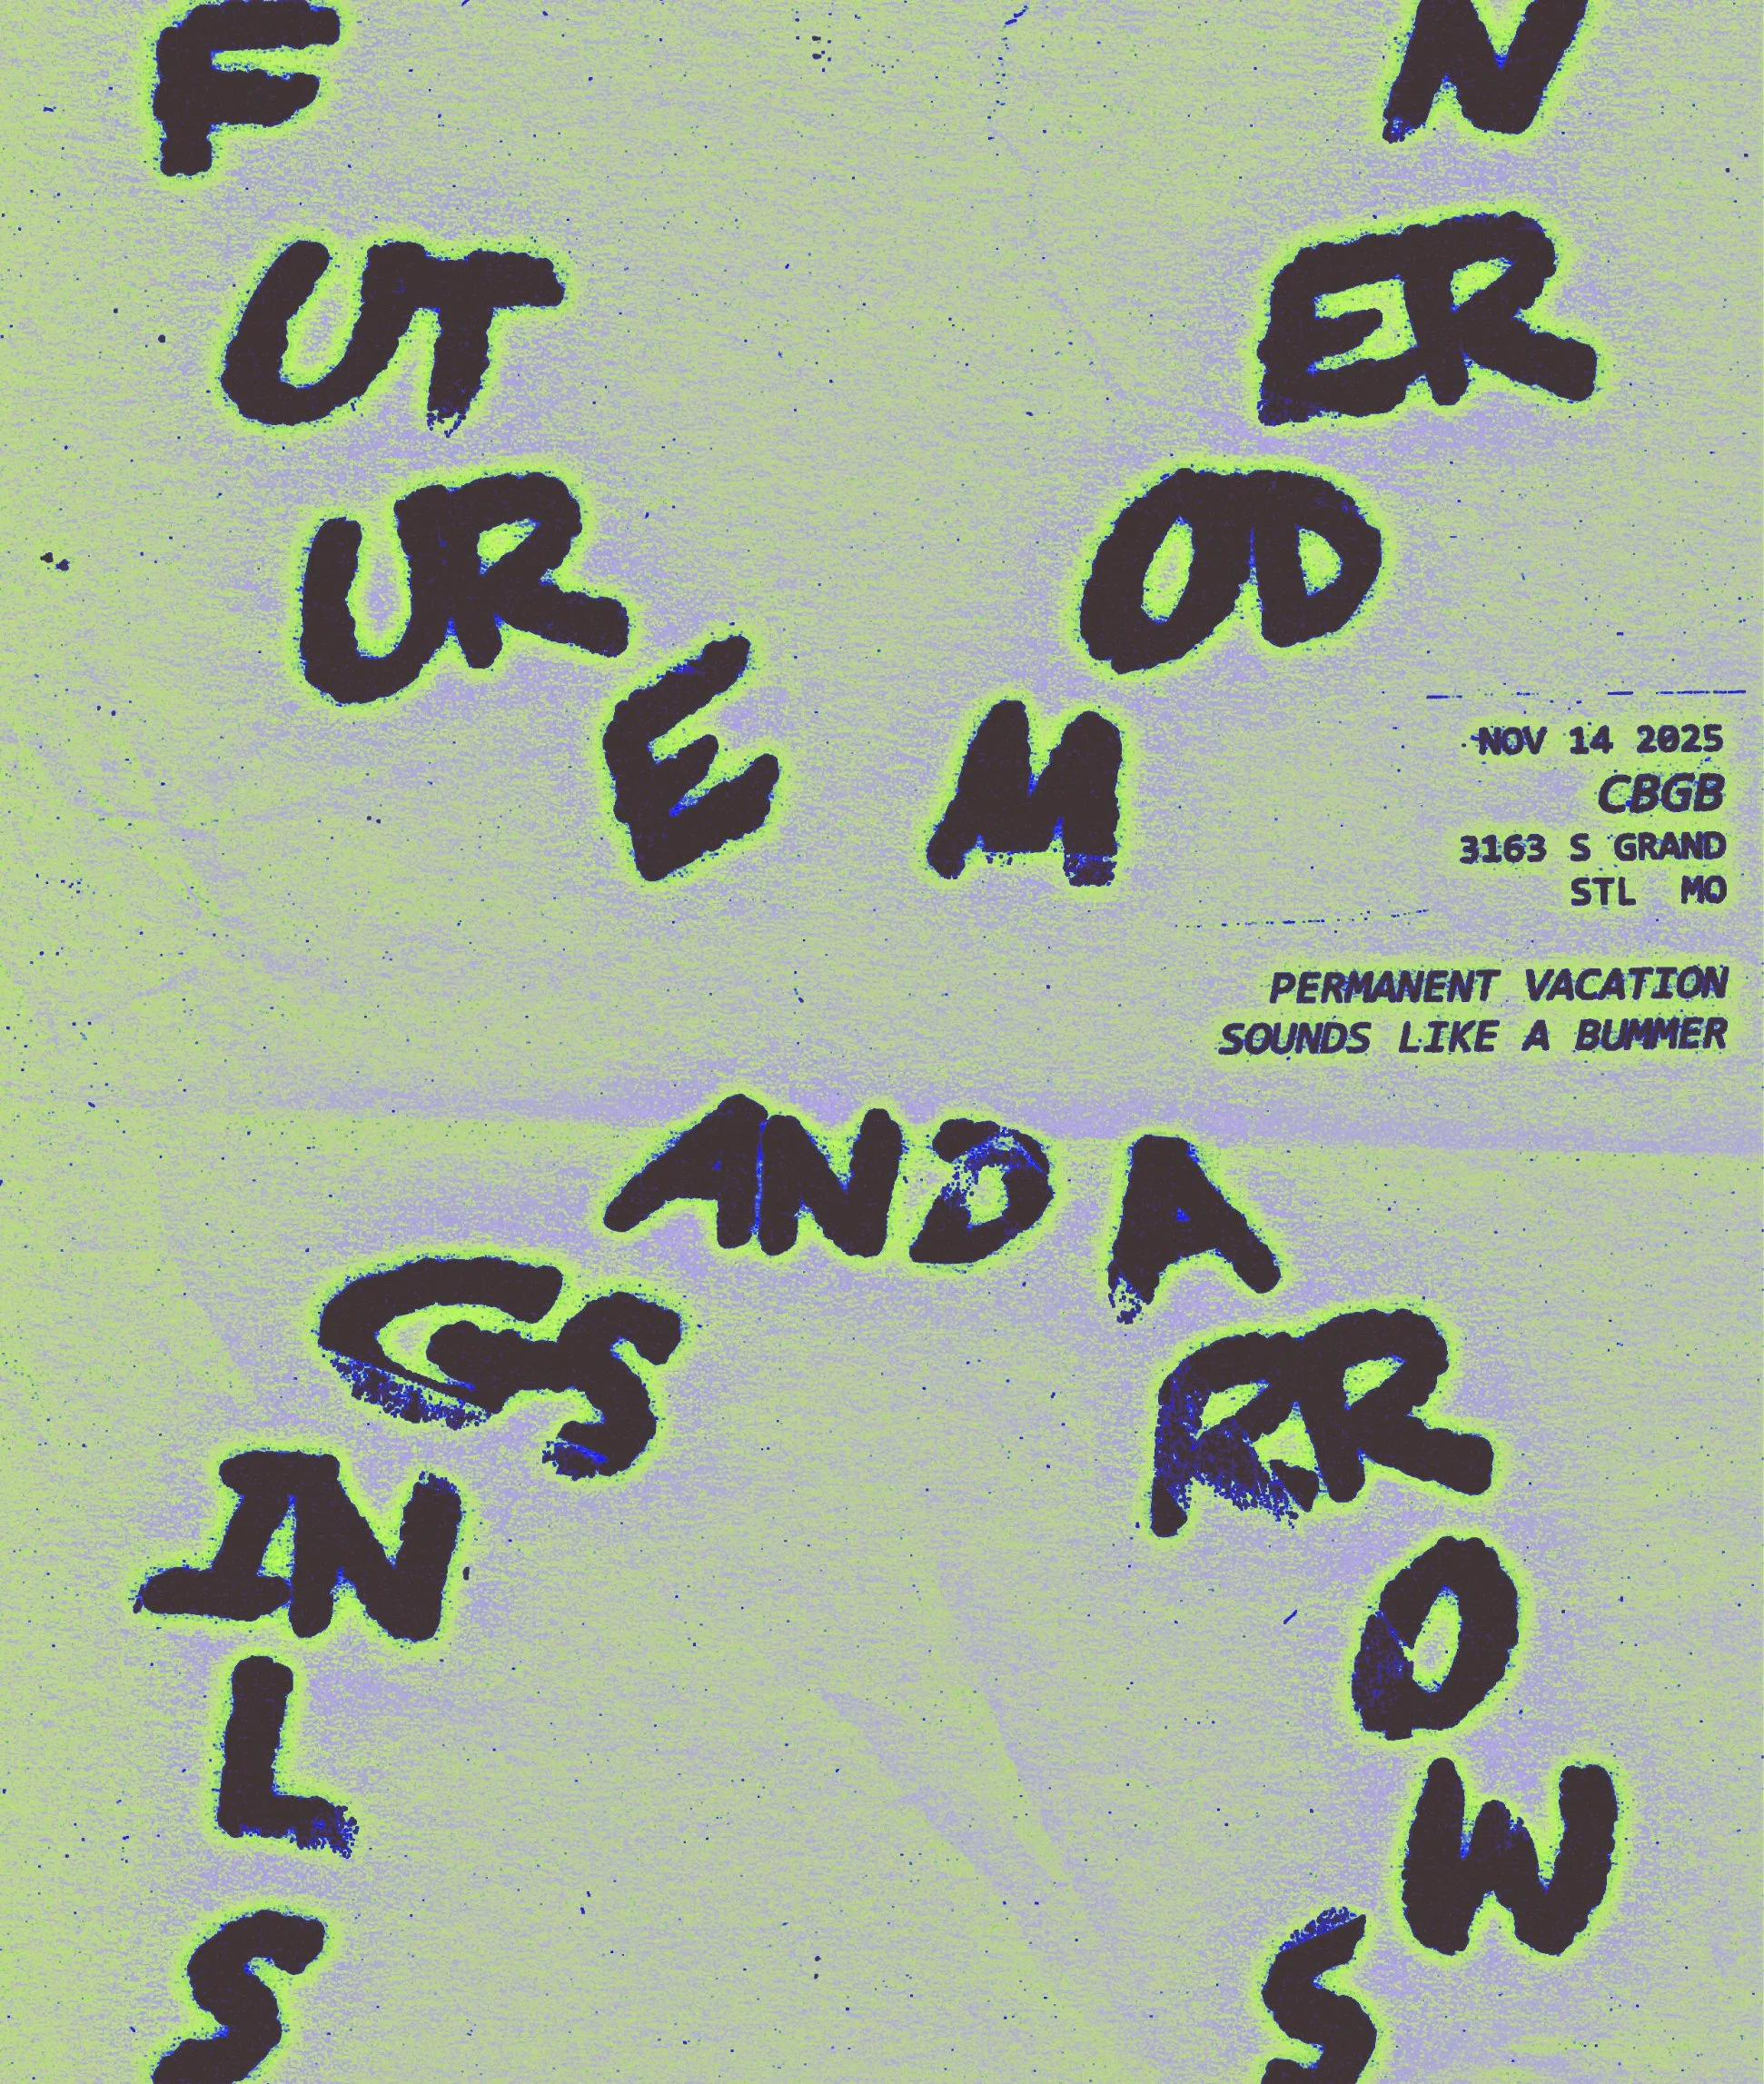 FUTURE MODERN
NOV 14 2025
CBGB
3163 S GRAND
STL MO
PERMANENT VACATION
SOUNDS LIKE A BUMMER
SLINGS AND ARROWS